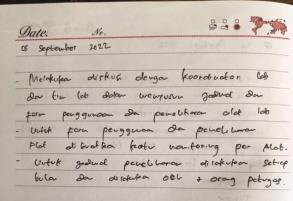 Date. No.
05 September 2022
- Melakukan diskusi dengan koordinator lab
dan tim lab dalam menyusun jadwal dan
form penggunaan dan pemeliharaan alat lab
- Untuk form penggunaan dan pemeliharaan
Alat dibuatkan kartu monitoring per Alat.
- Untuk jadwal pemeliharaan dilakukan setiap
bulan dan dilakukan oleh orang petugas.